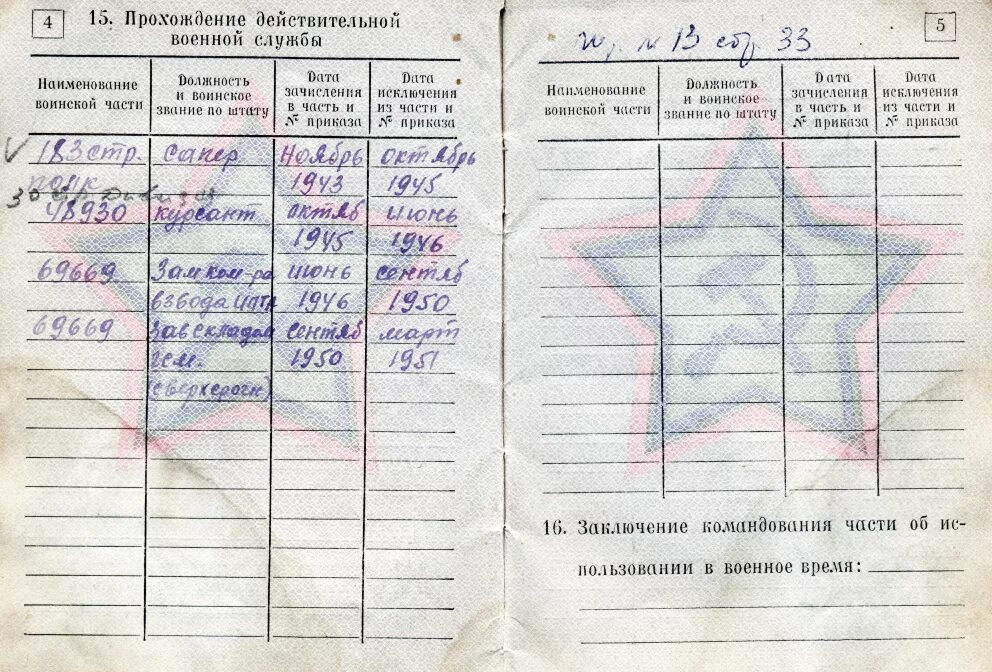 4
15. Прохождение действительной
военной службы
Наименование воинской части
Должность и воинское звание по штату
Дата зачисления в часть и № приказа
Дата исключения из части и № приказа
183 стр. сапер Ноябрь октябрь
полк 1943 1945
30 стр дивизия
48930 курсант октяб июнь
1945 1946
69669 Зам ком-ра июнь сентяб
взвода 1946 1950
69669 Завскладом сентяб март
1950 1951
(сверхсрочн)
5
№ 13 стр 33
Наименование воинской части
Должность и воинское звание по штату
Дата зачисления в часть и № приказа
Дата исключения из части и № приказа
16. Заключение командования части об ис-
пользовании в военное время: